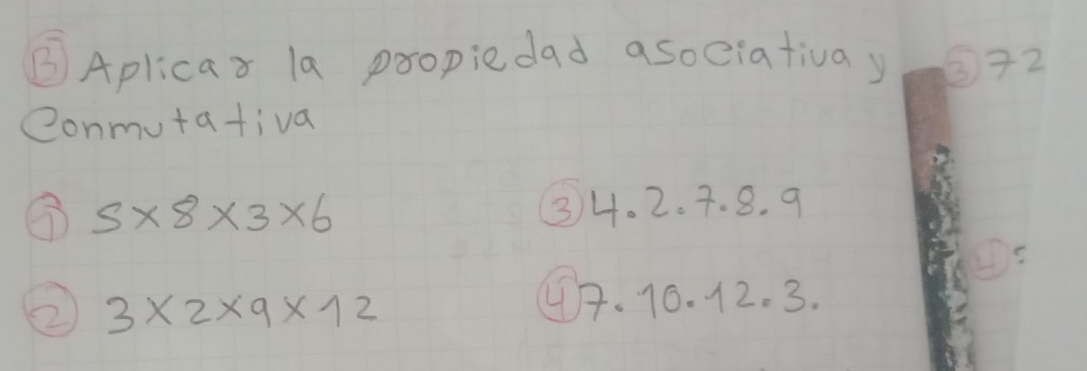 B Aplicar la propiedad asociativa y
Conmutativa
① 5x8x3x6
③ 4.2.7.8.9
② 3x2x9x12
④ 7.10.12.3.
③ 72
④